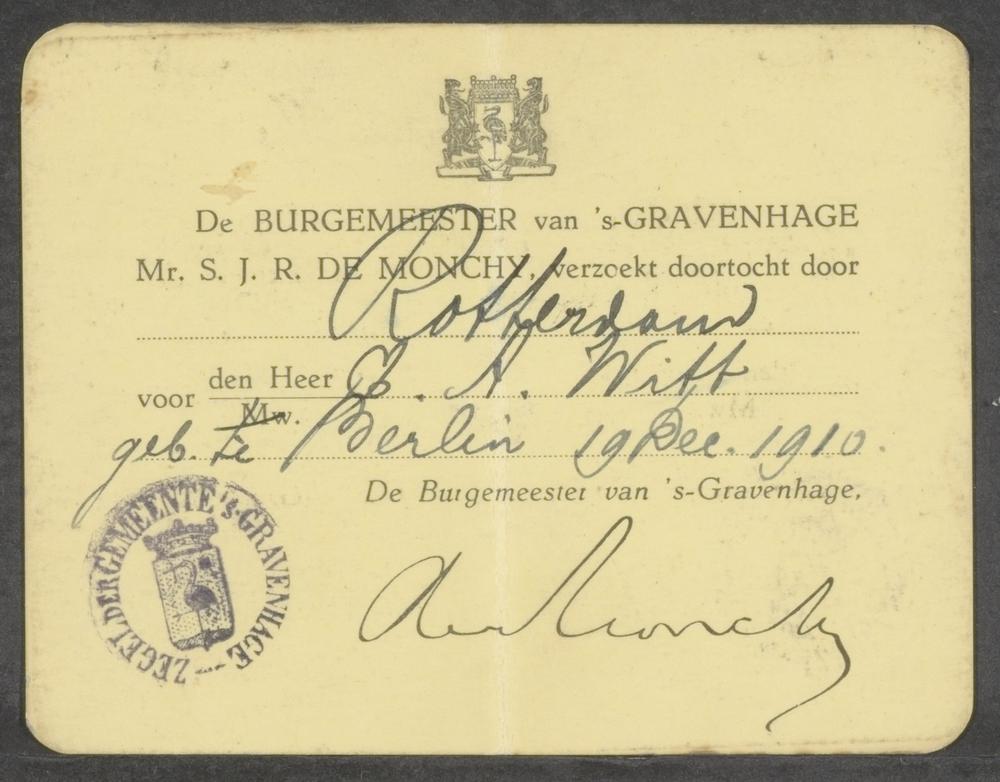 De BURGEMEESTER van 's-GRAVENHAGE
Mr. S. J. R. DE MONCHY, verzoekt doortocht door
Rotterdam
voor den Heer E. A. Witt
Mw.
geb. te Berlin 19 Dec. 1910.
De Burgemeester van 's-Gravenhage,
de Monchy
ZEGEL DER GEMEENTE 's-GRAVENHAGE